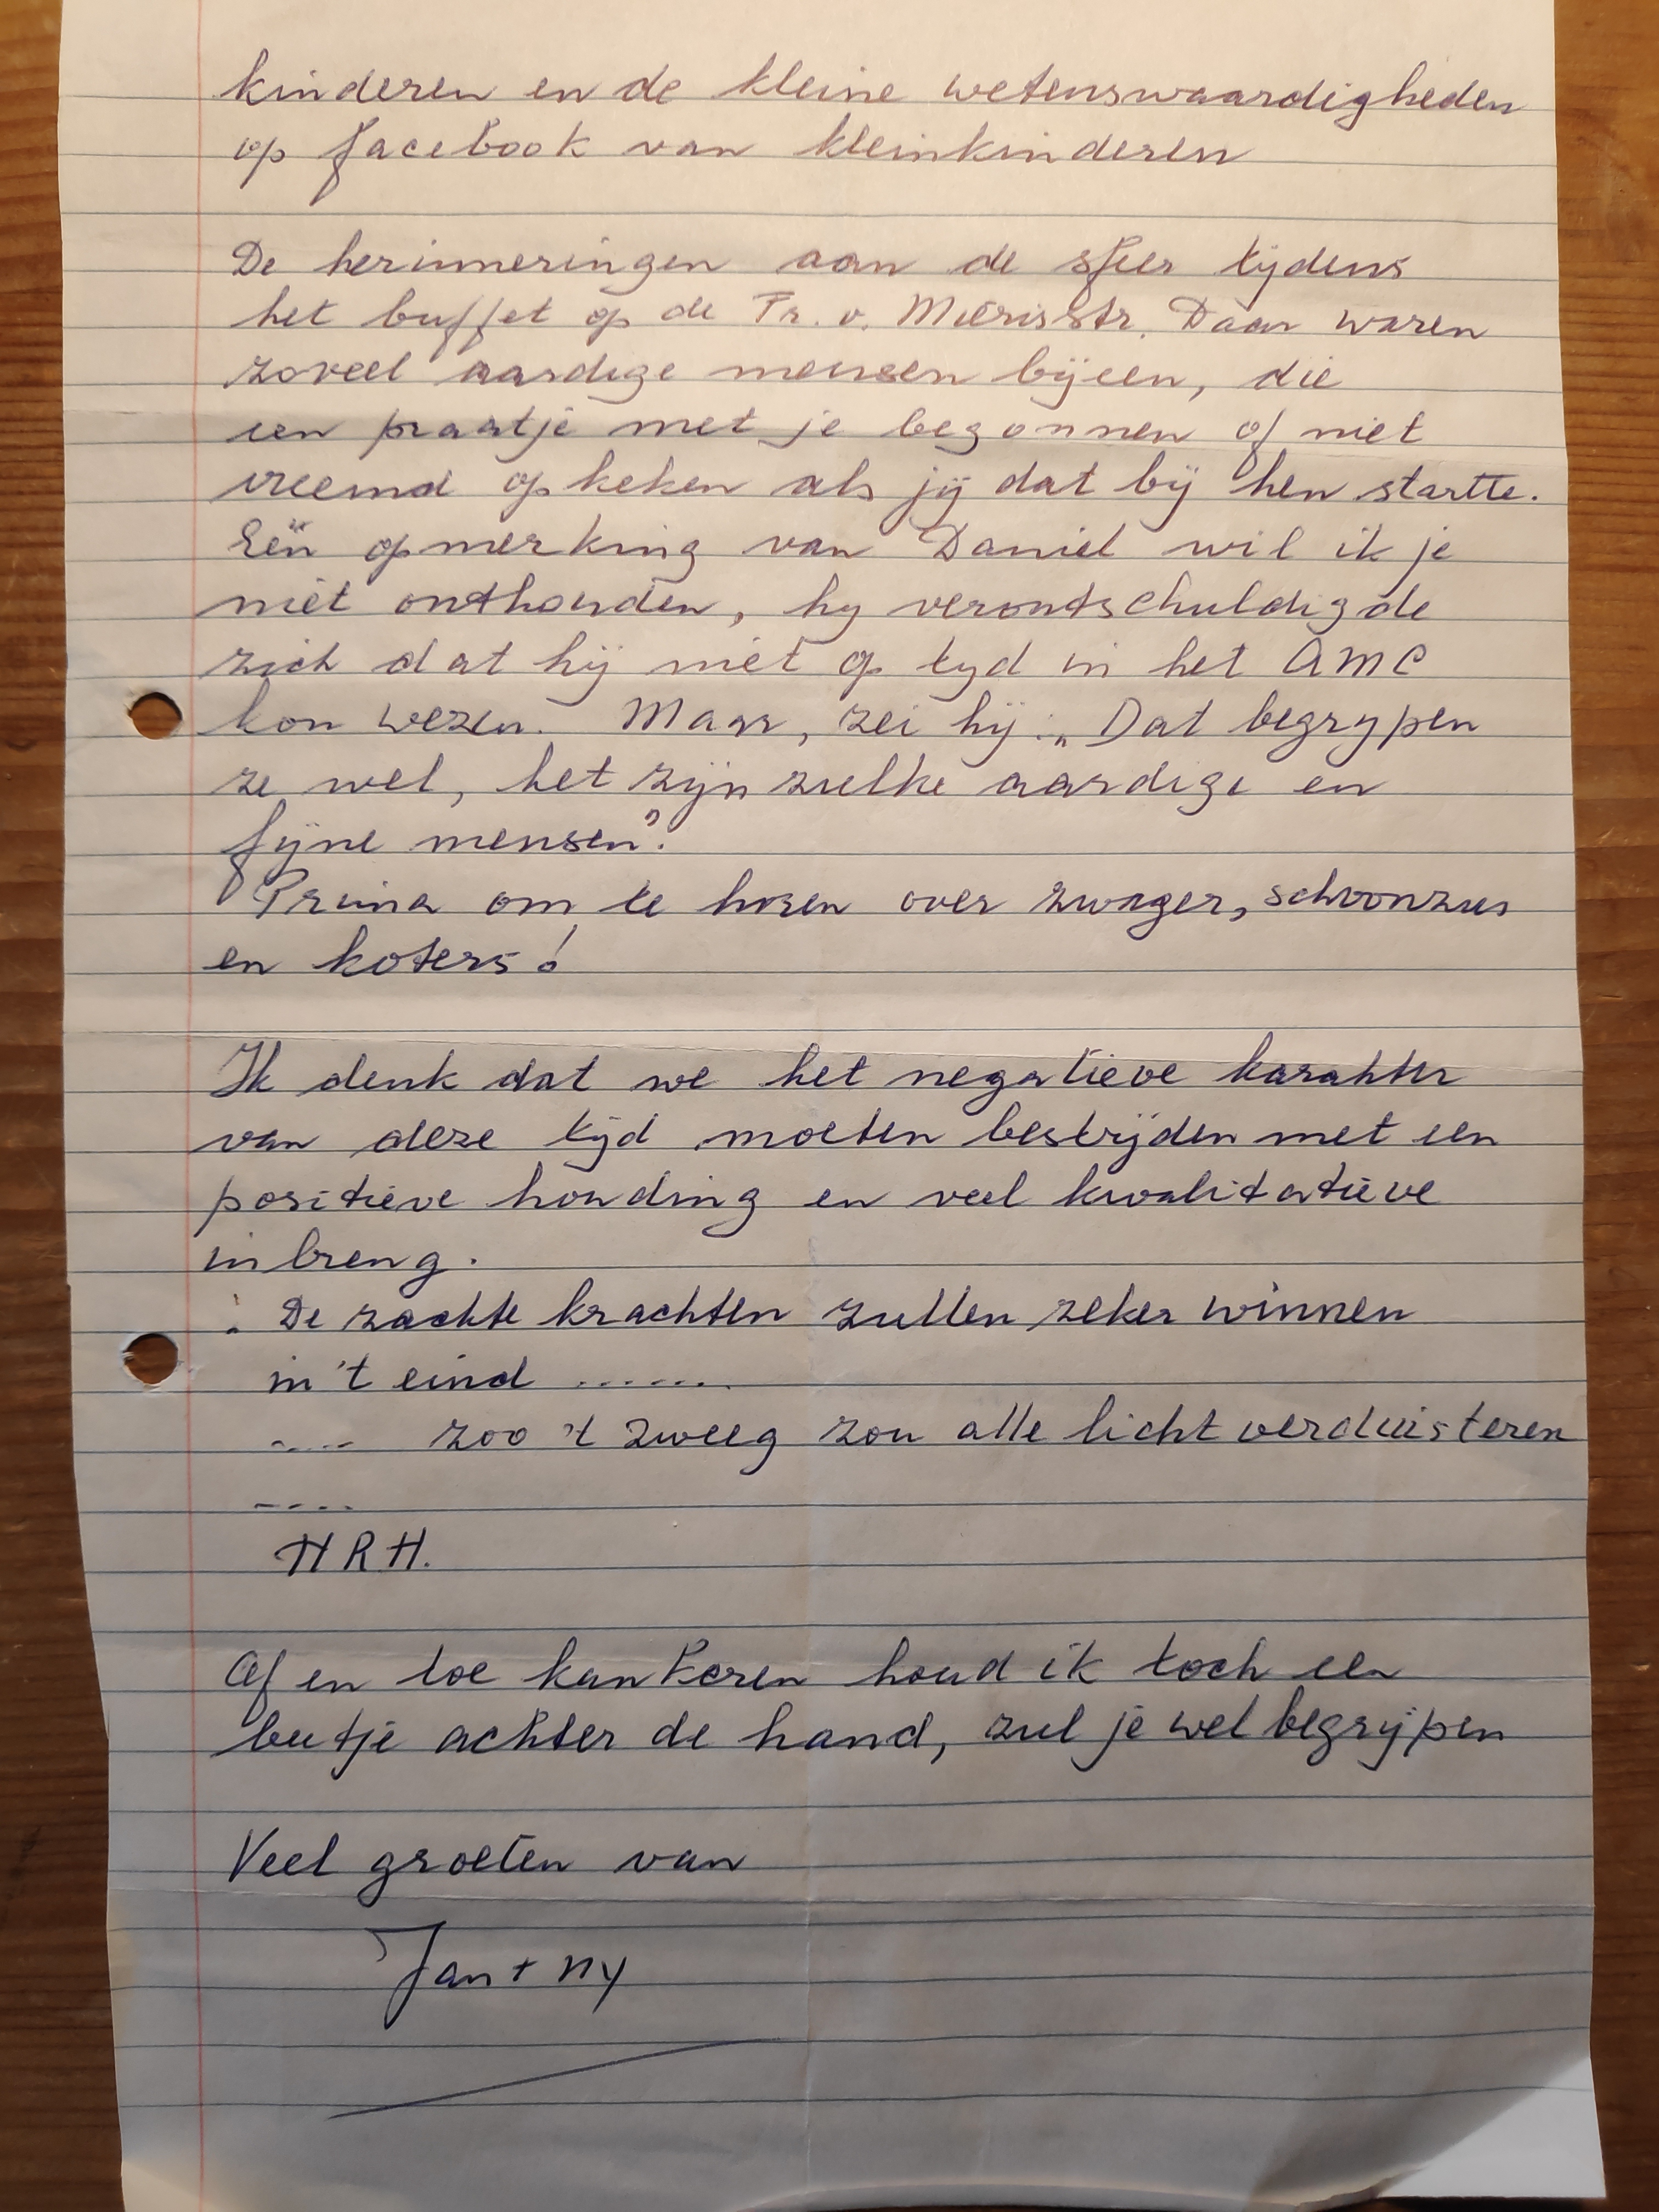 kinderen en de kleine wetenswaardigheden
op facebook van kleinkinderen
De herinneringen aan de sfeer tijdens
het buffet op de Fr. v. Mierisstr. Daar waren
zoveel aardige mensen bijeen, die
een praatje met je begonnen of niet
vreemd opkeken als jij dat bij hen startte.
Eén opmerking van Daniel wil ik je
niet onthouden, hij verontschuldigde
zich dat hij niet op tijd in het AMC
kon wezen. Maar, zei hij: „Dat begrijpen
ze wel, het zijn zulke aardige en
fijne mensen".
Prima om te horen over zwager, schoonzus
en koters!
Ik denk dat we het negatieve karakter
van deze tijd moeten bestrijden met een
positieve houding en veel kwalitatieve
inbreng.
: De zachte krachten zullen zeker winnen
in 't eind .......
.... zoo 't zweeg zou alle licht verduisteren
....
HRH.
Af en toe kankeren houd ik toch een
beetje achter de hand, zul je wel begrijpen
Veel groeten van
Jan + NY